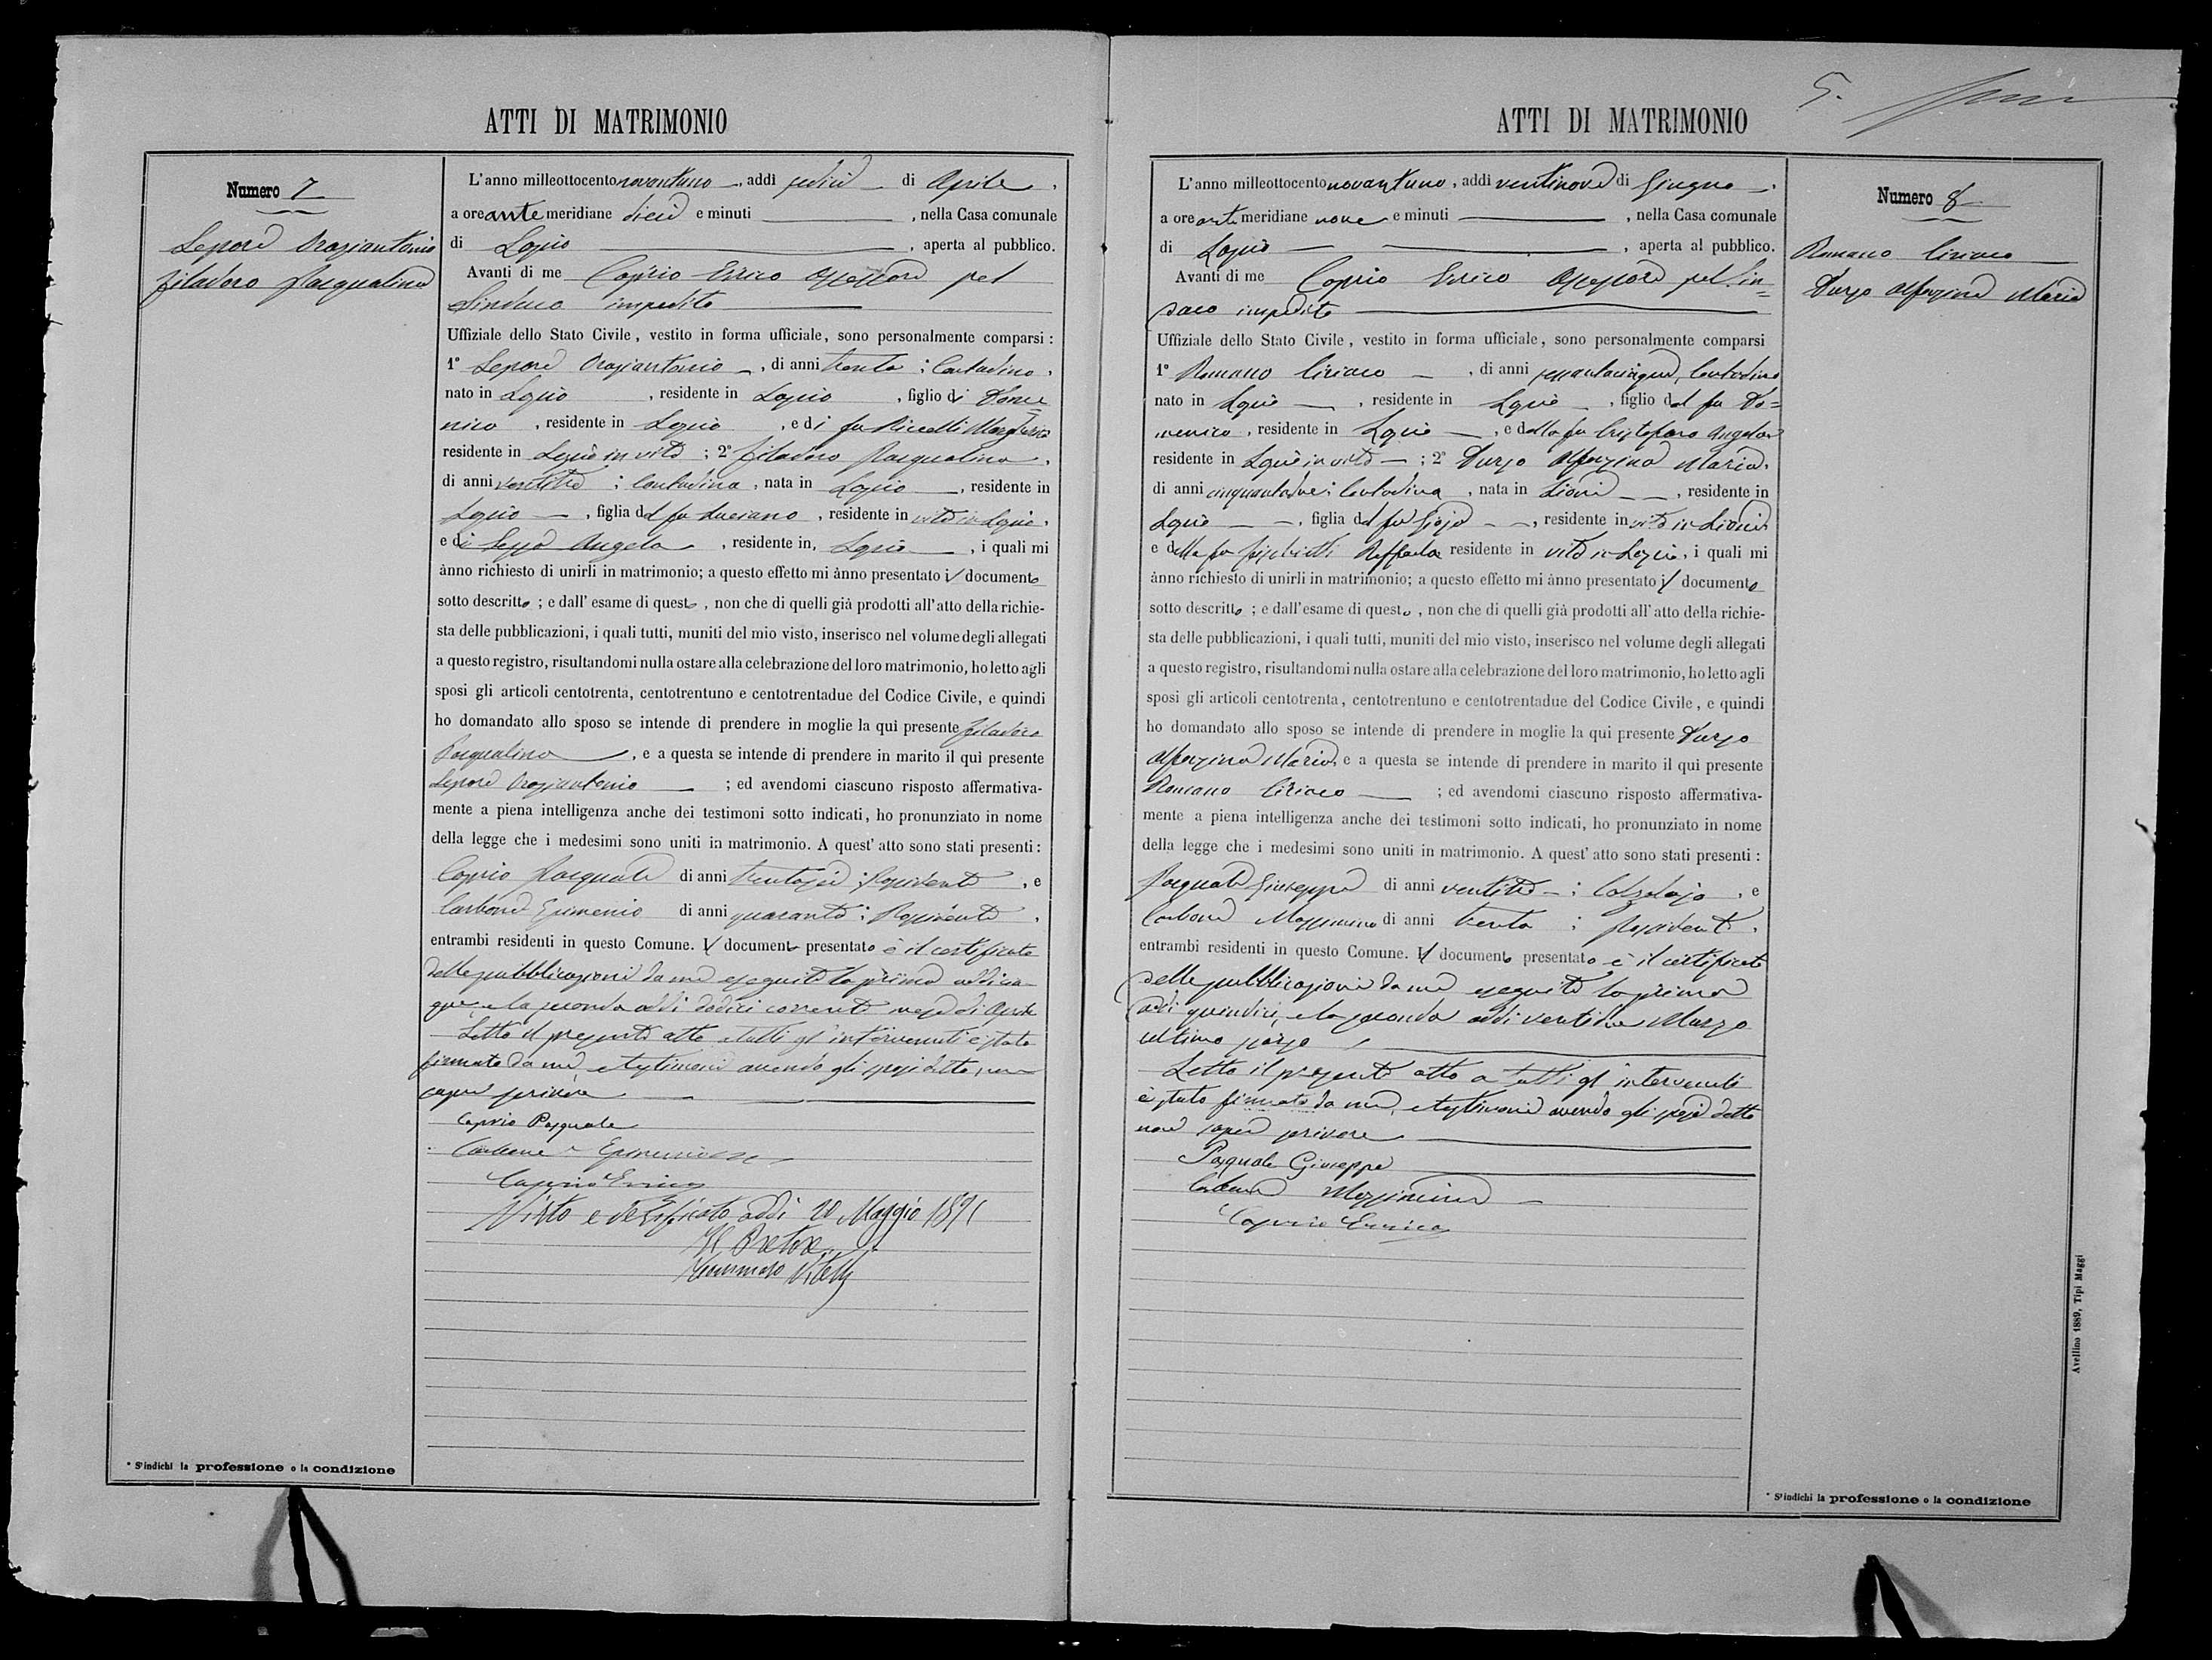 ATTI DI MATRIMONIO
Numero 7
Lepore Oraziantonio
Filadoro Pasqualina
L'anno milleottocento novantuno, addì sedici di Aprile,
a ore ante meridiane dieci e minuti , nella Casa comunale
di Lapio , aperta al pubblico.
Avanti di me Caprio Errico Assessore pel
Sindaco impedito
Uffiziale dello Stato Civile, vestito in forma ufficiale, sono personalmente comparsi:
1° Lepore Oraziantonio, di anni trenta; Contadino,
nato in Lapio, residente in Lapio, figlio di Dome=
nico, residente in Lapio, e di fu Riccelli
residente in Lapio in vita; 2° Filadoro Pasqualina,
di anni ventitre; Contadina, nata in Lapio, residente in
Lapio, figlia del fu Luciano, residente in vita in Lapio,
e di Angela, residente in, Lapio, i quali mi
ànno richiesto di unirli in matrimonio; a questo effetto mi ànno presentato il documento
sotto descritto; e dall'esame di questo, non che di quelli già prodotti all'atto della richie-
sta delle pubblicazioni, i quali tutti, muniti del mio visto, inserisco nel volume degli allegati
a questo registro, risultandomi nulla ostare alla celebrazione del loro matrimonio, ho letto agli
sposi gli articoli centotrenta, centotrentuno e centotrentadue del Codice Civile, e quindi
ho domandato allo sposo se intende di prendere in moglie la qui presente Filadoro
Pasqualina, e a questa se intende di prendere in marito il qui presente
Lepore Oraziantonio; ed avendomi ciascuno risposto affermativa-
mente a piena intelligenza anche dei testimoni sotto indicati, ho pronunziato in nome
della legge che i medesimi sono uniti in matrimonio. A quest'atto sono stati presenti:
Caprio Pasquale di anni trentasei; Possidente, e
Carbone Epimenio di anni quaranta; Possidente,
entrambi residenti in questo Comune. Il documento presentato è il certificato
delle pubblicazioni da me eseguite la prima addì cin-
que, e la seconda addì dodici corrente mese di Aprile
Letto il presente atto a tutti gl'intervenuti è stato
firmato da me, e testimoni avendo gli sposi detto, non
saper scrivere
Caprio Pasquale
Carbone Epimenio
Caprio Errico
Visto e verificato addì 20 Maggio 1891
Il Pretore
Tommaso
* S'indichi la professione o la condizione
5.
ATTI DI MATRIMONIO
Numero 8
Romano Ciriaco
Durso Alfonsina Maria
L'anno milleottocento novantuno, addì ventinove di Giugno,
a ore ante meridiane nove e minuti , nella Casa comunale
di Lapio , aperta al pubblico.
Avanti di me Caprio Errico Assessore pel Sin=
daco impedito
Uffiziale dello Stato Civile, vestito in forma ufficiale, sono personalmente comparsi
1° Romano Ciriaco, di anni sessantacinque, Contadino
nato in Lapio, residente in Lapio, figlio del fu Do=
menico, residente in Lapio, e della fu Cristofaro Angela
residente in Lapio in vita; 2° Durso Alfonsina Maria,
di anni cinquantadue; Contadina, nata in Lioni, residente in
Lapio, figlia del fu, residente in vita in Lioni
e della fu Raffaela residente in vita in Lapio, i quali mi
ànno richiesto di unirli in matrimonio; a questo effetto mi ànno presentato il documento
sotto descritto; e dall'esame di questo, non che di quelli già prodotti all'atto della richie-
sta delle pubblicazioni, i quali tutti, muniti del mio visto, inserisco nel volume degli allegati
a questo registro, risultandomi nulla ostare alla celebrazione del loro matrimonio, ho letto agli
sposi gli articoli centotrenta, centotrentuno e centotrentadue del Codice Civile, e quindi
ho domandato allo sposo se intende di prendere in moglie la qui presente Durso
Alfonsina Maria, e a questa se intende di prendere in marito il qui presente
Romano Ciriaco; ed avendomi ciascuno risposto affermativa-
mente a piena intelligenza anche dei testimoni sotto indicati, ho pronunziato in nome
della legge che i medesimi sono uniti in matrimonio. A quest'atto sono stati presenti:
Pasquale Giuseppe di anni ventitre; Calzolajo, e
Carbone Massimino di anni trenta; Possidente,
entrambi residenti in questo Comune. Il documento presentato è il certificato
delle pubblicazioni da me eseguite la prima
addì quindici, e la seconda addì ventidue Marzo
ultimo scorso
Letto il presente atto a tutti gl'intervenuti
è stato firmato da me, e testimoni avendo gli sposi detto
non saper scrivere
Pasquale Giuseppe
Carbone Massimino
Caprio Errico
* S'indichi la professione o la condizione
Avellino 1889, Tipi Maggi